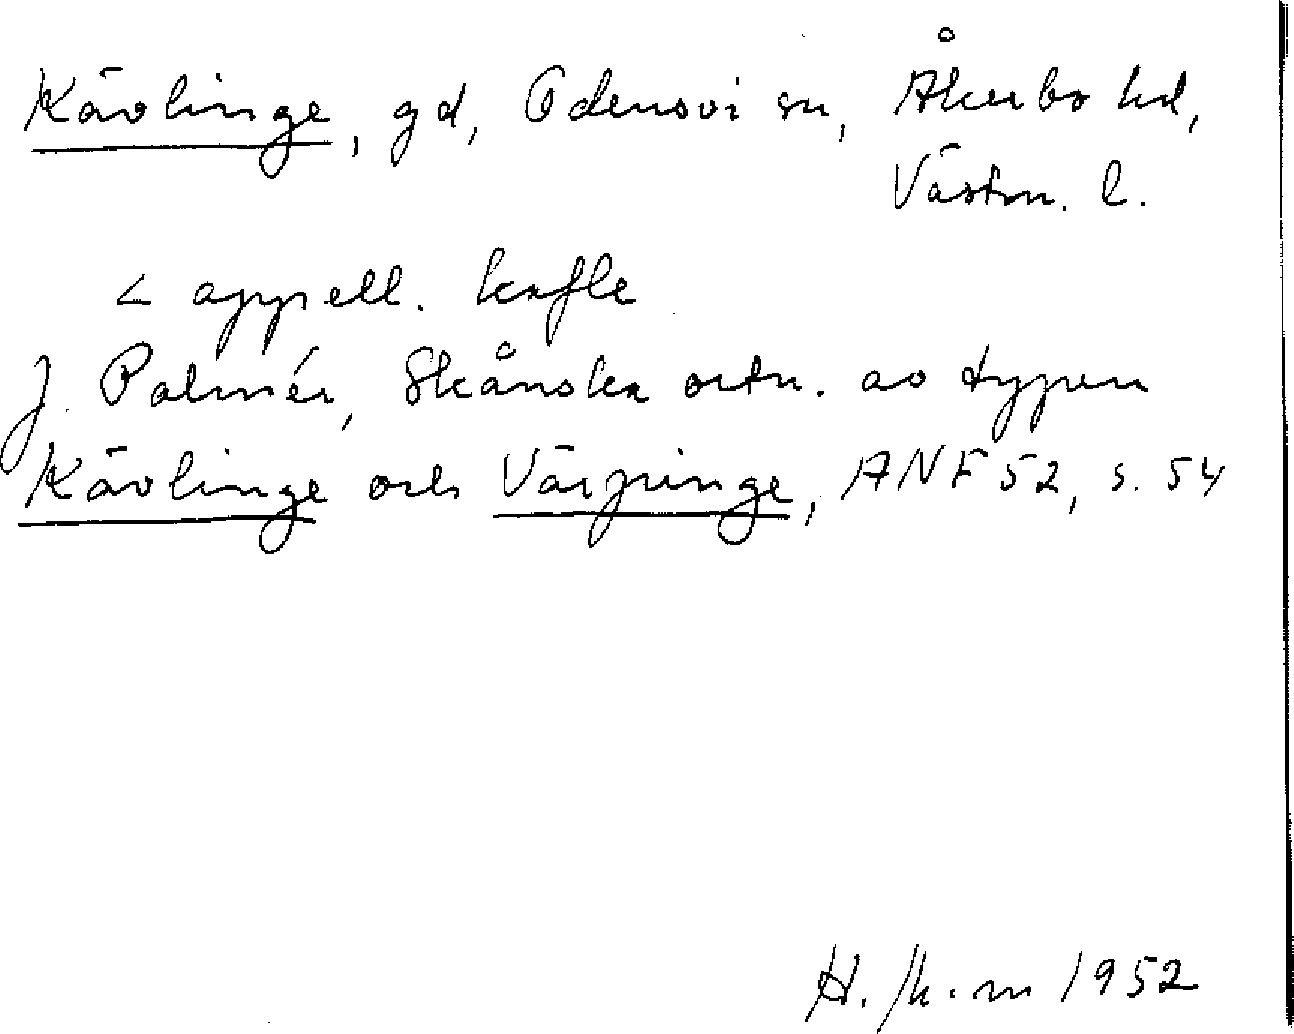 Kävlinge, gd, Odensvi sn, Åkerbo hd,
Västm. l.
< appell. kafle
J. Palmér, Skånska ortn. av typen
Kävlinge och Värpinge, ANF 52, s. 54
H. 1952